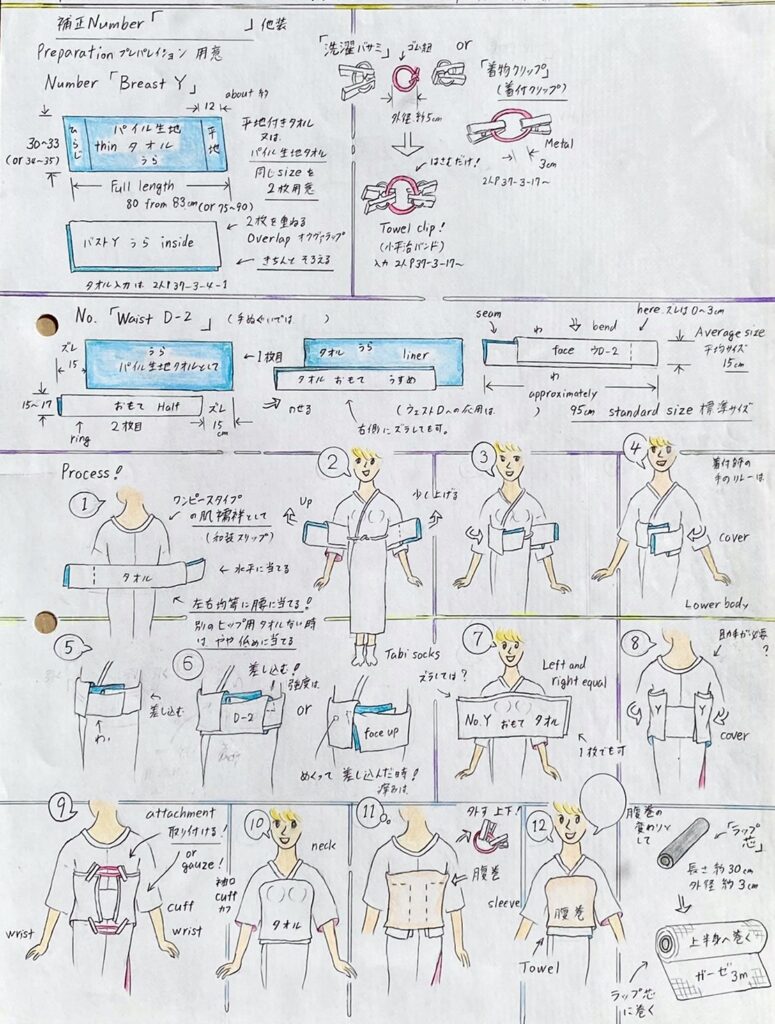 補正Number「　　　　」他装
Preparation プレパレイション 用意
Number「Breast Y」
about 約
12
30~33
(or 34~35)
ひらじ
パイル生地
thin タオル
うら
平地
Full length
80 from 83cm (or 75~90)
平地付きタオル
又は
パイル生地タオル
同じsizeを
2枚用意
バストY うら inside
2枚を重ねる
Overlap オヴァラップ
きちんと そろえる
タオル入力は 2人P37-3-4-1
「洗濯バサミ」
ゴム紐
or
外径 約5cm
はさむだけ!
Towel clip!
(小平治バンド)
入力 2人P37-3-17~
「着物クリップ」
(着付クリップ)
Metal
3cm
2人P37-3-17~
No.「Waist D-2」
(手ぬぐいでは　　　)
ズレ
15
うら
パイル生地タオルとして
1枚目
15~17
おもて Half
ズレ
15
cm
ring
2枚目
タオル うら liner
タオル おもて うすめ
のせる
右側にズラしても可。
(ウェストDへの応用は　　　)
seam
わ
bend
here ズレは0~3cm
face うD-2
Average size
平均サイズ
15cm
approximately
95cm standard size 標準サイズ
Process!
①
ワンピースタイプ
の肌襦袢として
(和装スリップ)
タオル
水平に当てる
左右均等に腰に当てる!
別のヒップ用タオルない時
は やや低めに当てる
②
Up
少し上げる
Tabi socks
③
④
着付師の
手のリレーは
cover
Lower body
⑤
差し込む
わ。
⑥
差し込む!
強度は
D-2
or
face up
めくって 差し込んだ時!
厚みは
⑦
Left and
right equal
ズラしては?
No.Y おもて タオル
1枚でも可
⑧
助手が必要
?
Y
Y
cover
⑨
attachment
取り付ける!
or
gauze!
cuff
wrist
wrist
⑩
neck
袖口
cuff
カフ
タオル
⑪
外す 上下!
腹巻
⑫
sleeve
腹巻
Towel
腹巻の
変わりと
して
「ラップ
芯」
長さ 約30cm
外径 約3cm
上半身へ巻く
ガーゼ3m
ラップ芯
に巻く